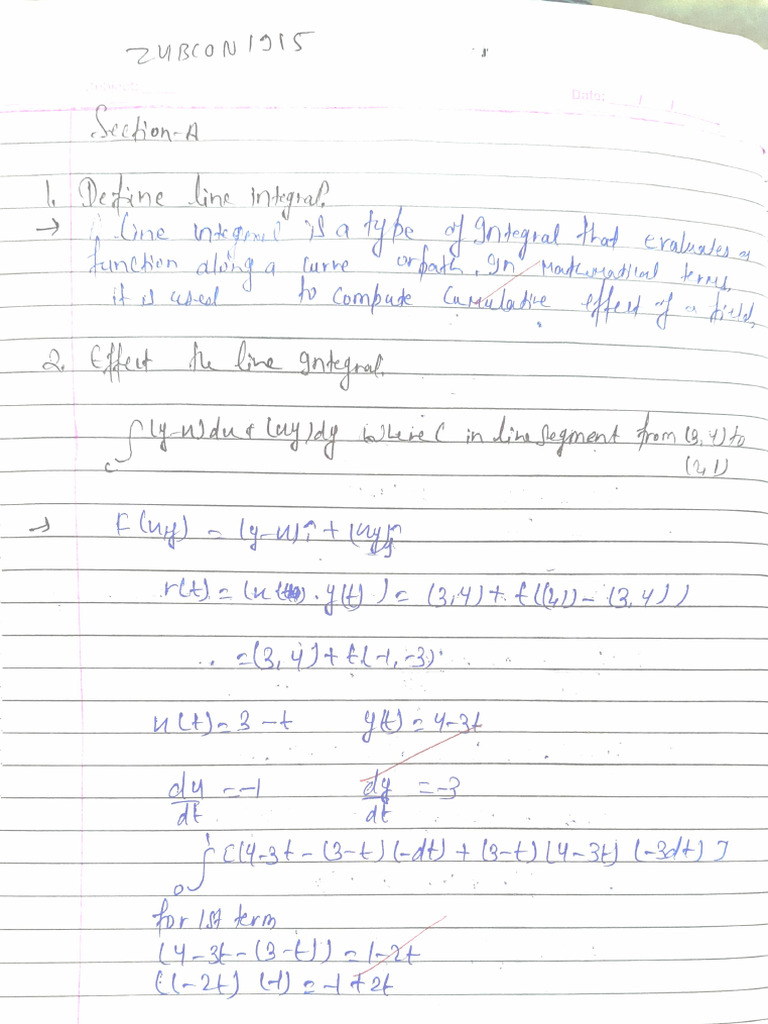 ZUBCON1915
Date:
Section-A
1. Define line integral.
→ Line integral is a type of Integral that evaluates a
function along a curve or path. In Mathematical terms,
it is used to compute Cumulative effect of a field.
2. Effect the line Integral.
∫c (y-x)dx + (xy)dy where C in line segment from (3,4) to
(2,1)
→ F(x,y) = (y-x)î + (xy)ĵ
r(t) = (x(t), y(t)) = (3,4) + t((2,1) - (3,4))
= (3,4) + t(-1,-3)
x(t) = 3-t y(t) = 4-3t
dx/dt = -1 dy/dt = -3
∫₀¹ [(4-3t-(3-t)(-dt) + (3-t)(4-3t)(-3dt)]
for 1st term
(4-3t-(3-t)) = 1-2t
(1-2t) (-1) = -1+2t